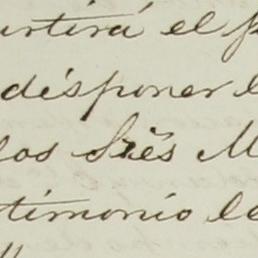 urtirá el p
disponer l
los Sres M
timonio le